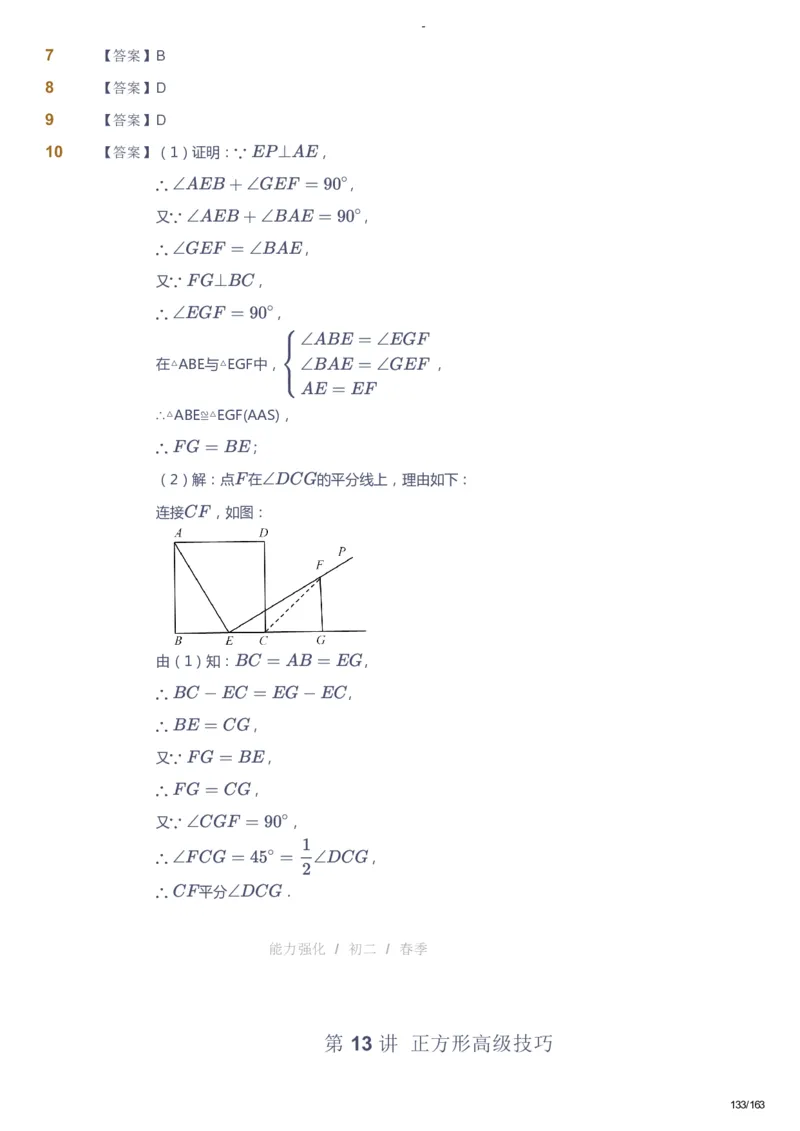 -
7 【答案】B
8 【答案】D
9 【答案】D
10 【答案】（1）证明：∵ EP⊥AE，
∴ ∠AEB + ∠GEF = 90°，
又∵ ∠AEB + ∠BAE = 90°，
∴ ∠GEF = ∠BAE，
又∵ FG⊥BC，
∴ ∠EGF = 90°，
∠ABE = ∠EGF
在△ABE与△EGF中，{ ∠BAE = ∠GEF ，
AE = EF
∴△ABE≌△EGF(AAS)，
∴ FG = BE；
（2）解：点F在∠DCG的平分线上，理由如下：
连接CF，如图：
A D
P
F
B E C G
由（1）知：BC = AB = EG，
∴ BC − EC = EG − EC，
∴ BE = CG，
又∵ FG = BE，
∴ FG = CG，
又∵ ∠CGF = 90°，
∴ ∠FCG = 45° = 1/2 ∠DCG，
∴ CF平分∠DCG．
能力强化 / 初二 / 春季
第 13 讲 正方形高级技巧
133/163